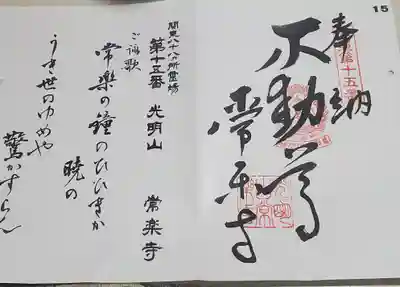 15
奉納
不動尊
常楽寺
関東八十八ヵ所霊場
第十五番 光明山 常楽寺
ご詠歌
常楽の鐘のひひきか 暁の
うき世のゆめや 驚かすらん